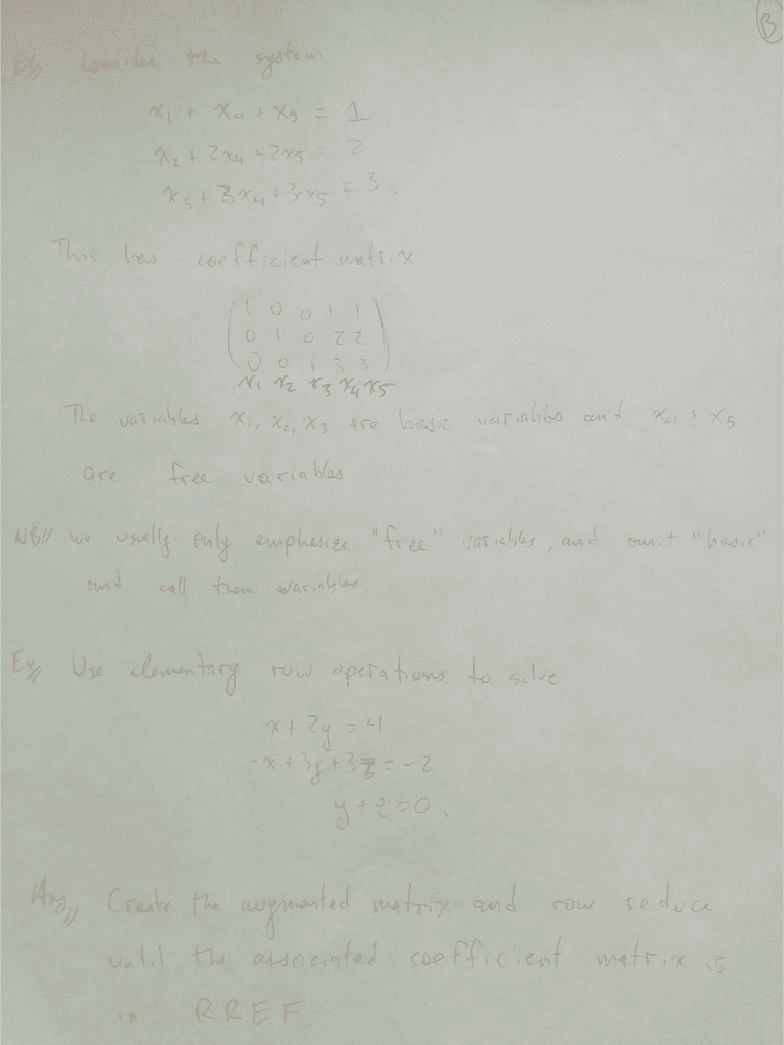 B
Ex// Consider the system
x₁ + x₄ + x₅ = 1
x₂ + 2x₄ + 2x₅ = 2
x₃ + 3x₄ + 3x₅ = 3.
This has coefficient matrix
1 0 0 1 1
0 1 0 2 2
0 0 1 3 3
x₁ x₂ x₃ x₄ x₅
The variables x₁, x₂, x₃ are basic variables and x₄ & x₅
are free variables
NB// We usually only emphesize "free" variables, and omit "basic"
and call them variables.
Ex// Use elementary row operations to solve
x + 2y = 4
-x + 3y + 3z = -2
y + z = 0.
Ans// Create the augmented matrix and row reduce
until the associated coefficient matrix is
in RREF